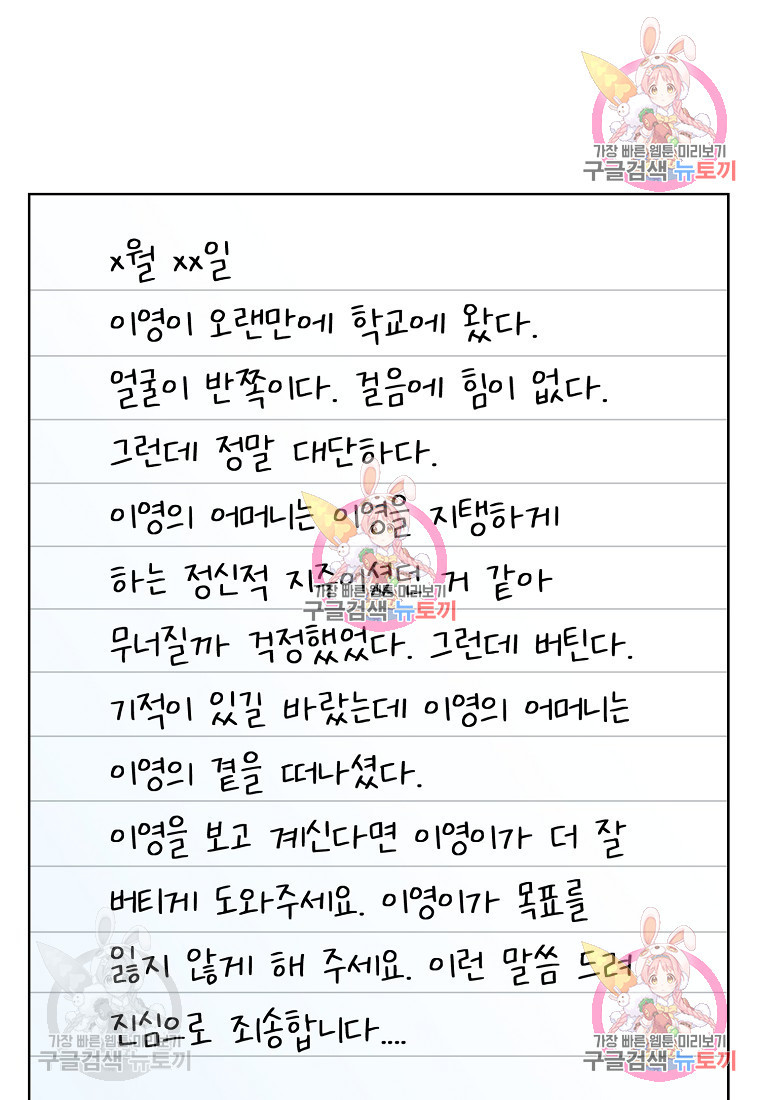 가장 빠른 웹툰 미리보기
구글검색 뉴토끼
x월 xx일
이영이 오랜만에 학교에 왔다.
얼굴이 반쪽이다. 걸음에 힘이 없다.
그런데 정말 대단하다.
이영의 어머니는 이영을 지탱하게
하는 정신적 지주이셨던 거 같아
가장 빠른 웹툰 미리보기
구글검색 뉴토끼
무너질까 걱정했었다. 그런데 버틴다.
기적이 있길 바랐는데 이영의 어머니는
이영의 곁을 떠나셨다.
이영을 보고 계신다면 이영이가 더 잘
버티게 도와주세요. 이영이가 목표를
잃지 않게 해 주세요. 이런 말씀 드려
진심으로 죄송합니다....
가장 빠른 웹툰 미리보기
구글검색 뉴토끼
가장 빠른 웹툰 미리보기
구글검색 뉴토끼